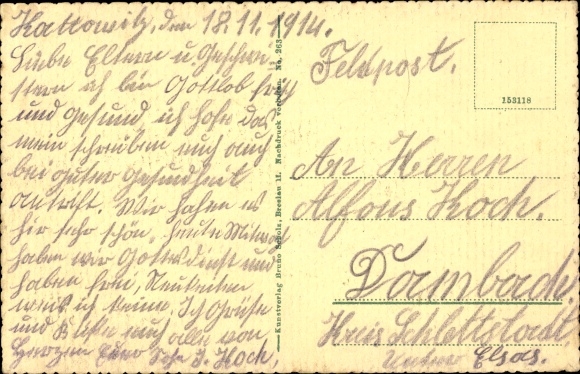 Kattowitz, den 18.11.1914.
Liebe Eltern u. Geschwi-
stern ich bin Gottlob
und gesund ich hoffe das
mein schreiben euch auch
bei guter Gesundheit
antrifft. Wir haben es
hir sehr schön, heute Mittwoch
haben wir Gottesdienst und
haben frei, Neuheiten
weis ich keine. Ich Grüße
und Küsse euch alle von
Herzen Euer Sohn J. Koch.
Kunstverlag Bruno Scholz, Breslau II. Nachdruck verboten. No. 263
Feldpost.
153118
An Herren
Alfons Koch.
Dambach
Kreis Schlettstadt
Unter Elsas.